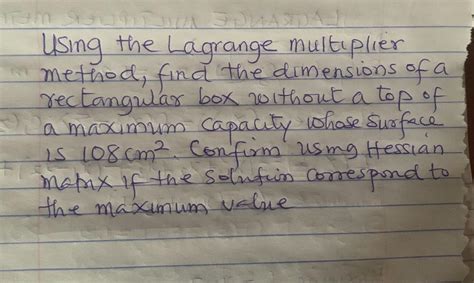 Using the Lagrange multiplier
method, find the dimensions of a
rectangular box without a top of
a maximum capacity whose surface
is 108cm². Confirm using Hessian
matrix if the solution correspond to
the maximum value